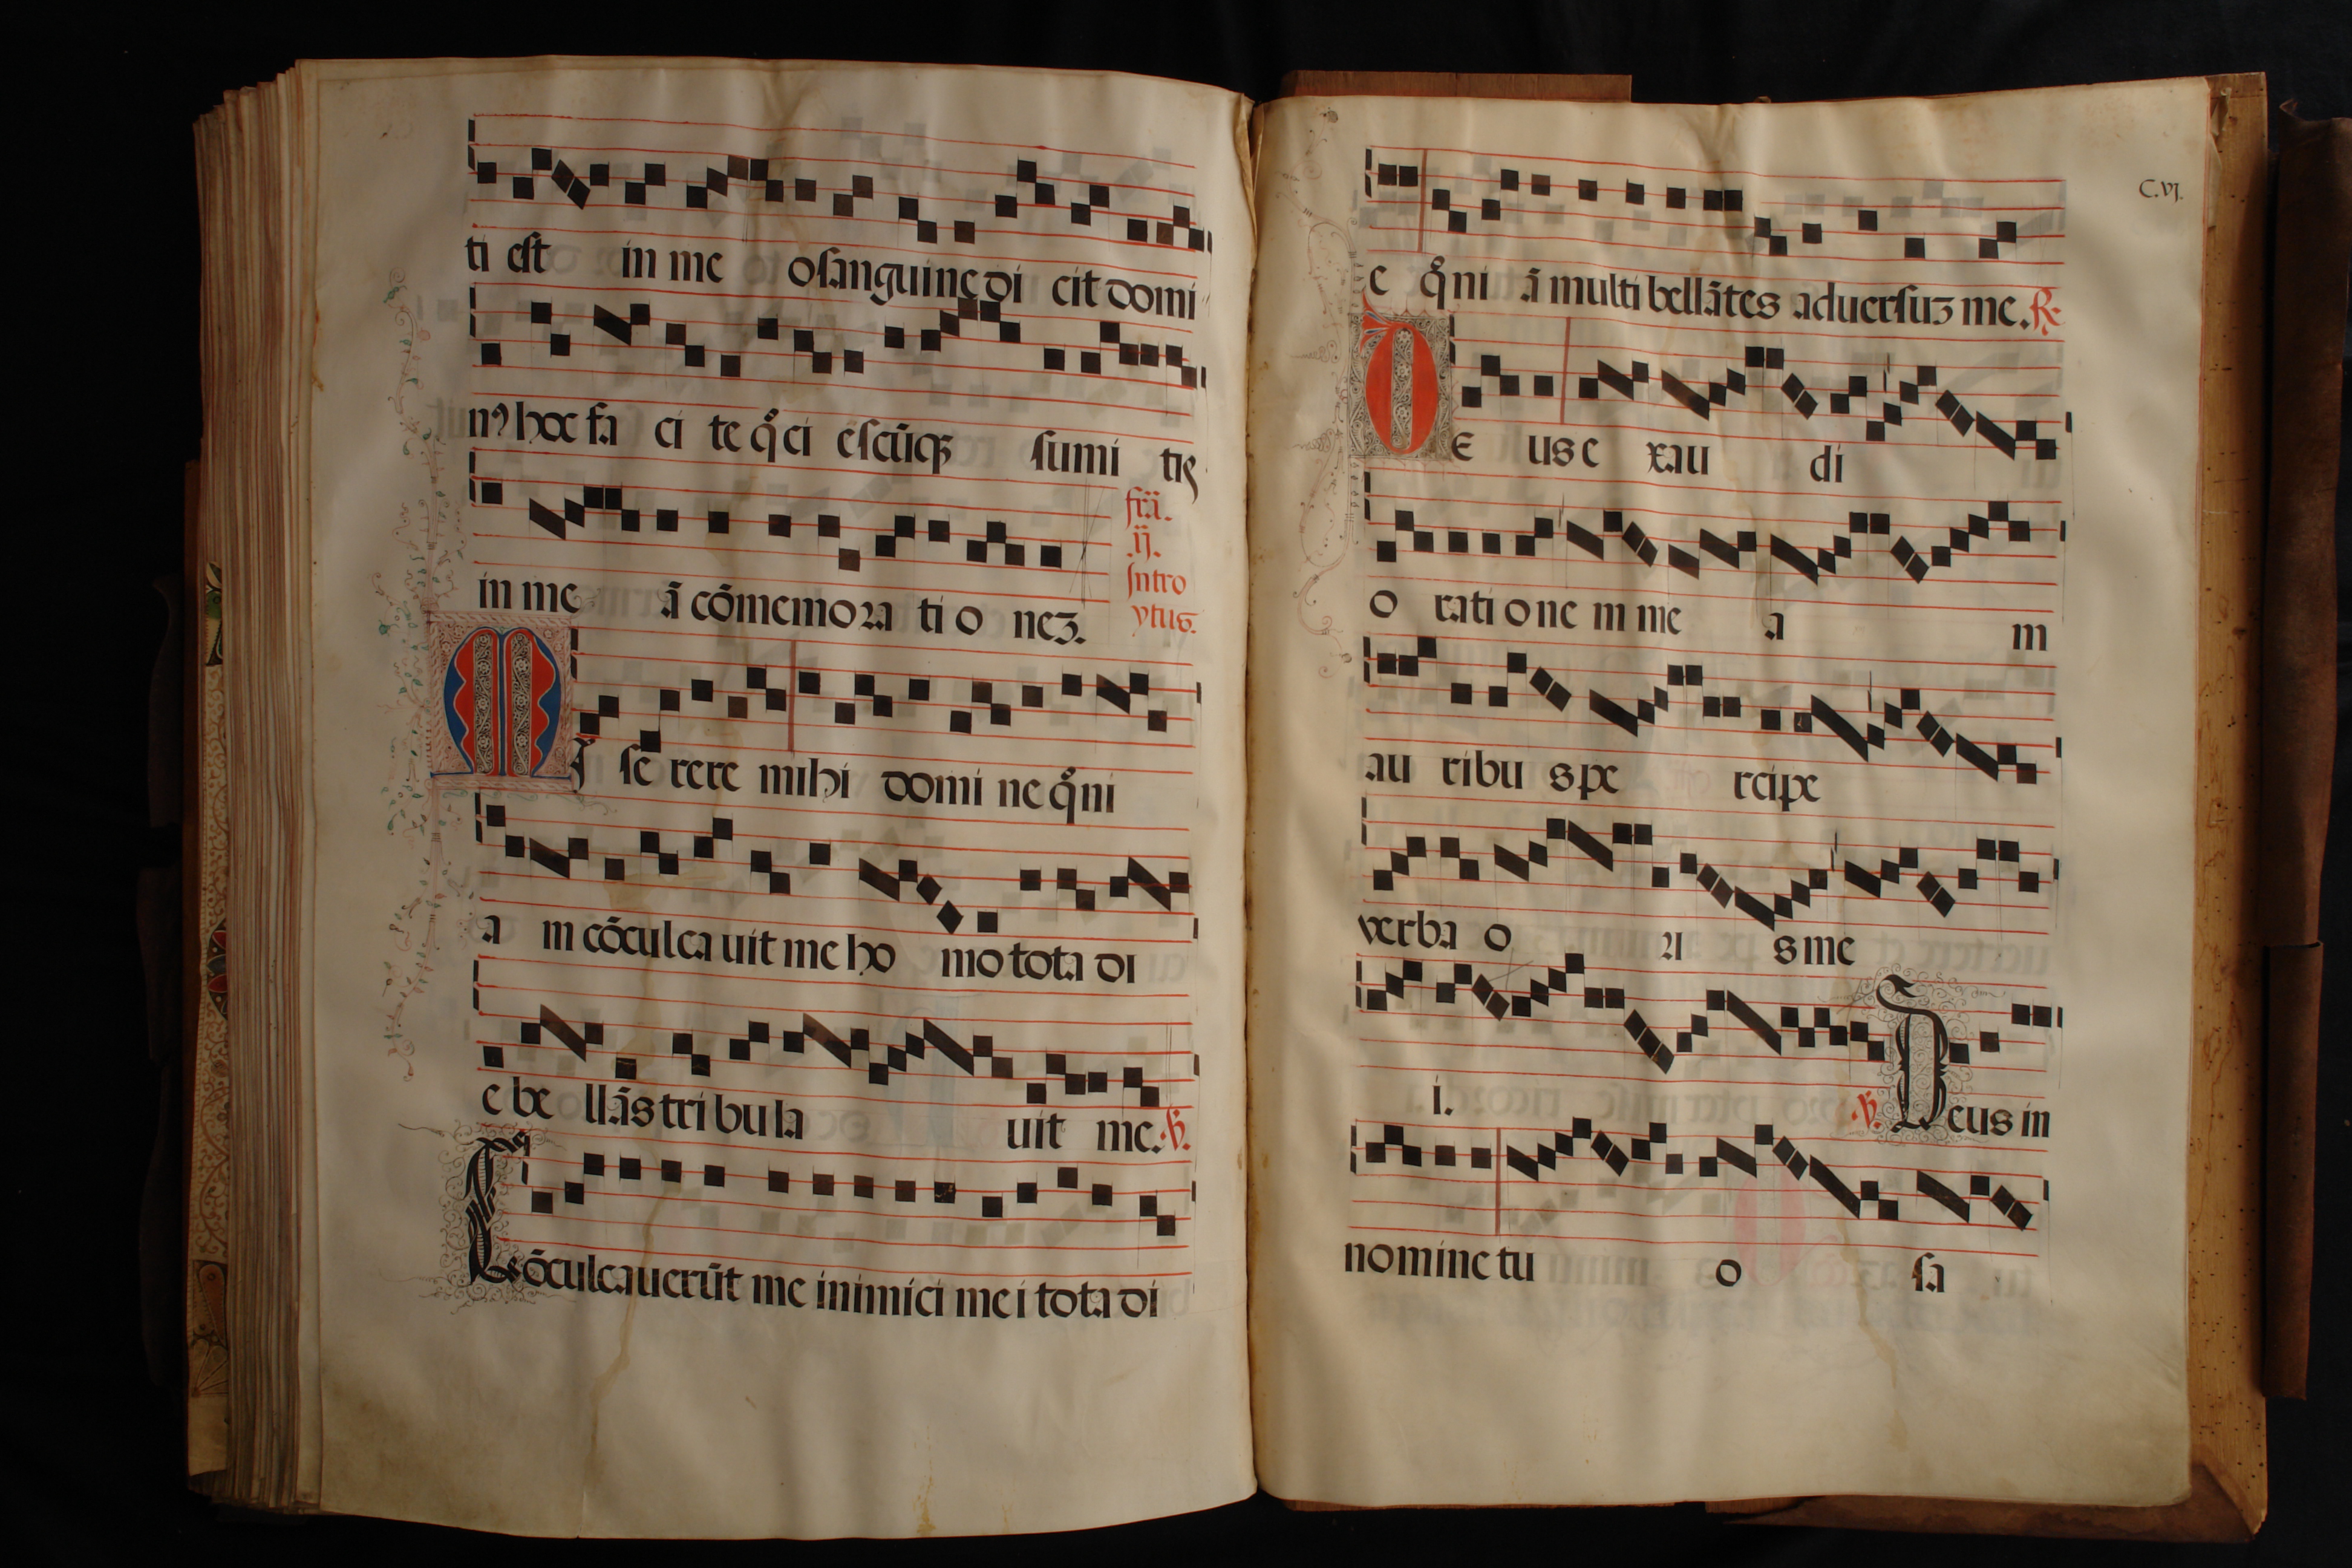 ti est in me o sanguine di cit domi
nꝰ hoc fa ci te qͦ ci ẽscũqꝫ sumi tis
in me ã cõmemora ti o neꝫ.
fr̃a.
.ij.
Intro
ytus.
MI se rere mihi domi ne qͦ ni
a m cõculca uit me ho mo tota di
e be llãs tri bu la uit me. ℣.
p̃s
Cõculcauerũt me inimici mei tota di
C.vj.
e qͦ ni ã multi bellãtes aduersuꝫ me. ℟.
DE us e xau di
o rati one m me a m
au ribu s pe rcipe
verba o ri s me
i. ℣. Deus in
nomine tu o sa